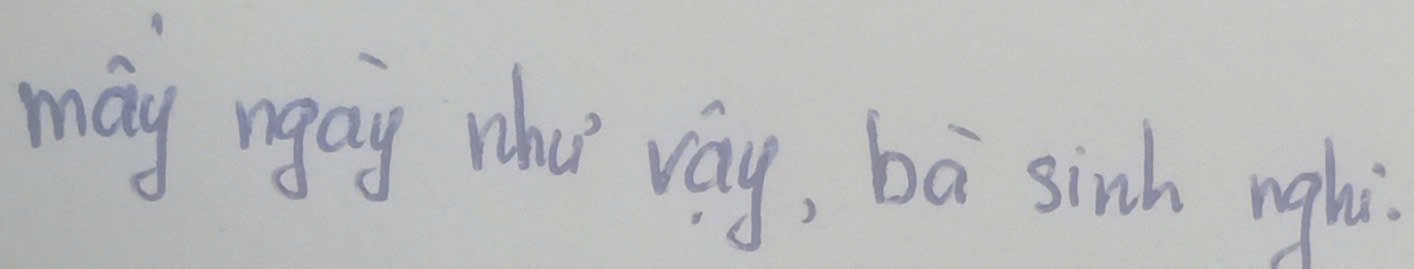 mấy ngày như vậy, bà sinh nghi.